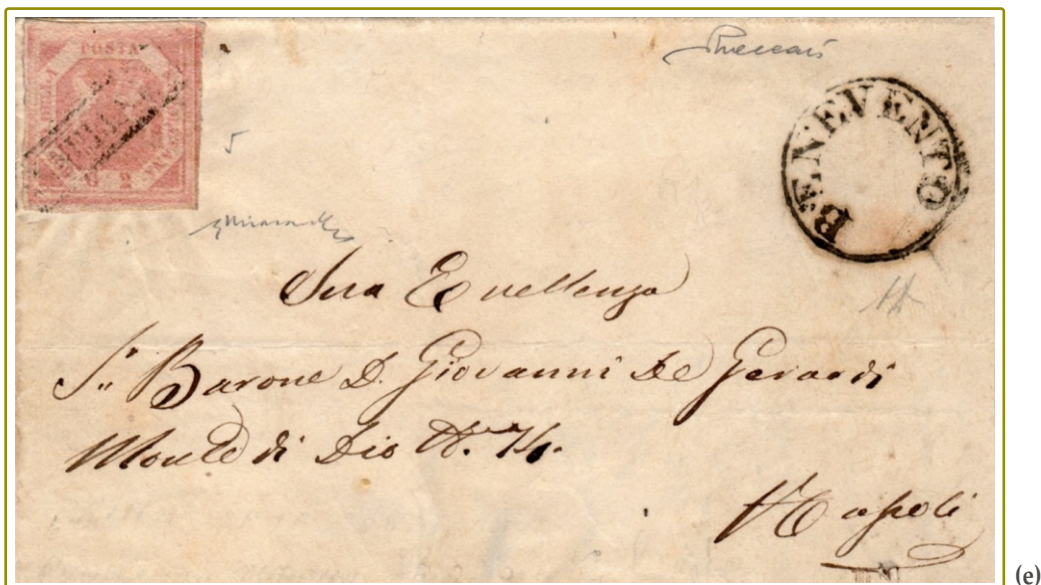 POSTA
G 2
BENEVENTO
5
Sua Eccellenza
S.r Barone D. Giovanni De Gerardi
Monte di Dio N.
Napoli
(e)